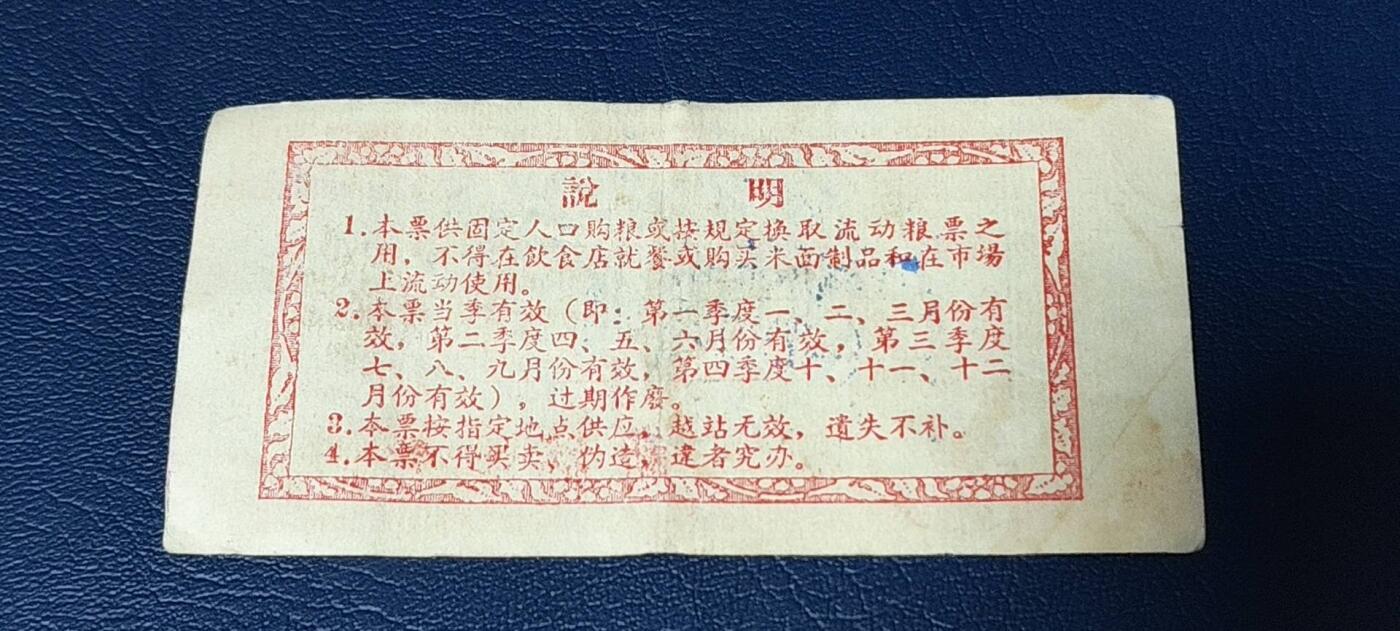 說 明
1.本票供固定人口购粮或按规定换取流动粮票之
用，不得在飲食店就餐或购买米面制品和在市場
上流动使用。
2.本票当季有效（即：第一季度一、二、三月份有
效，第二季度四、五、六月份有效，第三季度
七、八、九月份有效，第四季度十、十一、十二
月份有效），过期作廢。
3.本票按指定地点供应，越站无效，遺失不补。
4.本票不得买卖、伪造，違者究办。